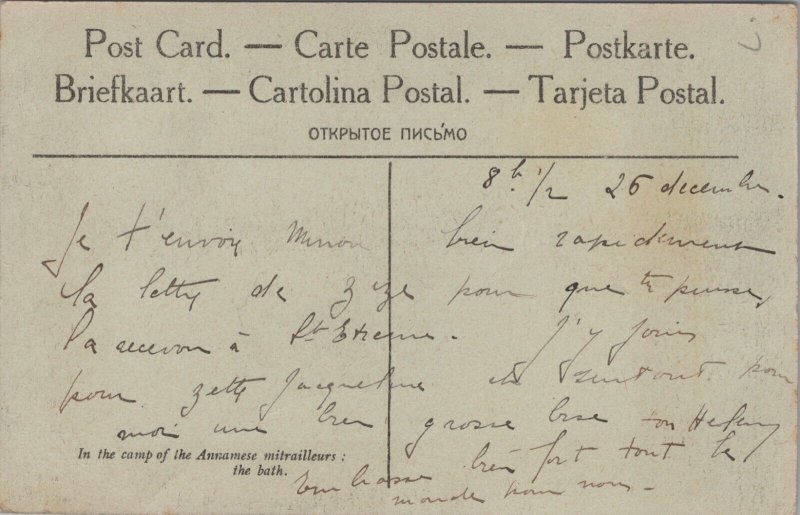 Post Card. — Carte Postale. — Postkarte.
Briefkaart. — Cartolina Postal. — Tarjeta Postal.
ОТКРЫТОЕ ПИСЬМО
8h. 1/2 26 decembre.
Je t'envoie Minou bien rapidement
la lettre de Zize pour que tu puisses
la recevoir à St Etienne. J'y joins
pour Zette Jacqueline et surtout pour
moi une bien grosse bise ton
In the camp of the Annamese mitrailleurs :
the bath.
Embrasse bien fort tout le
monde pour nous.